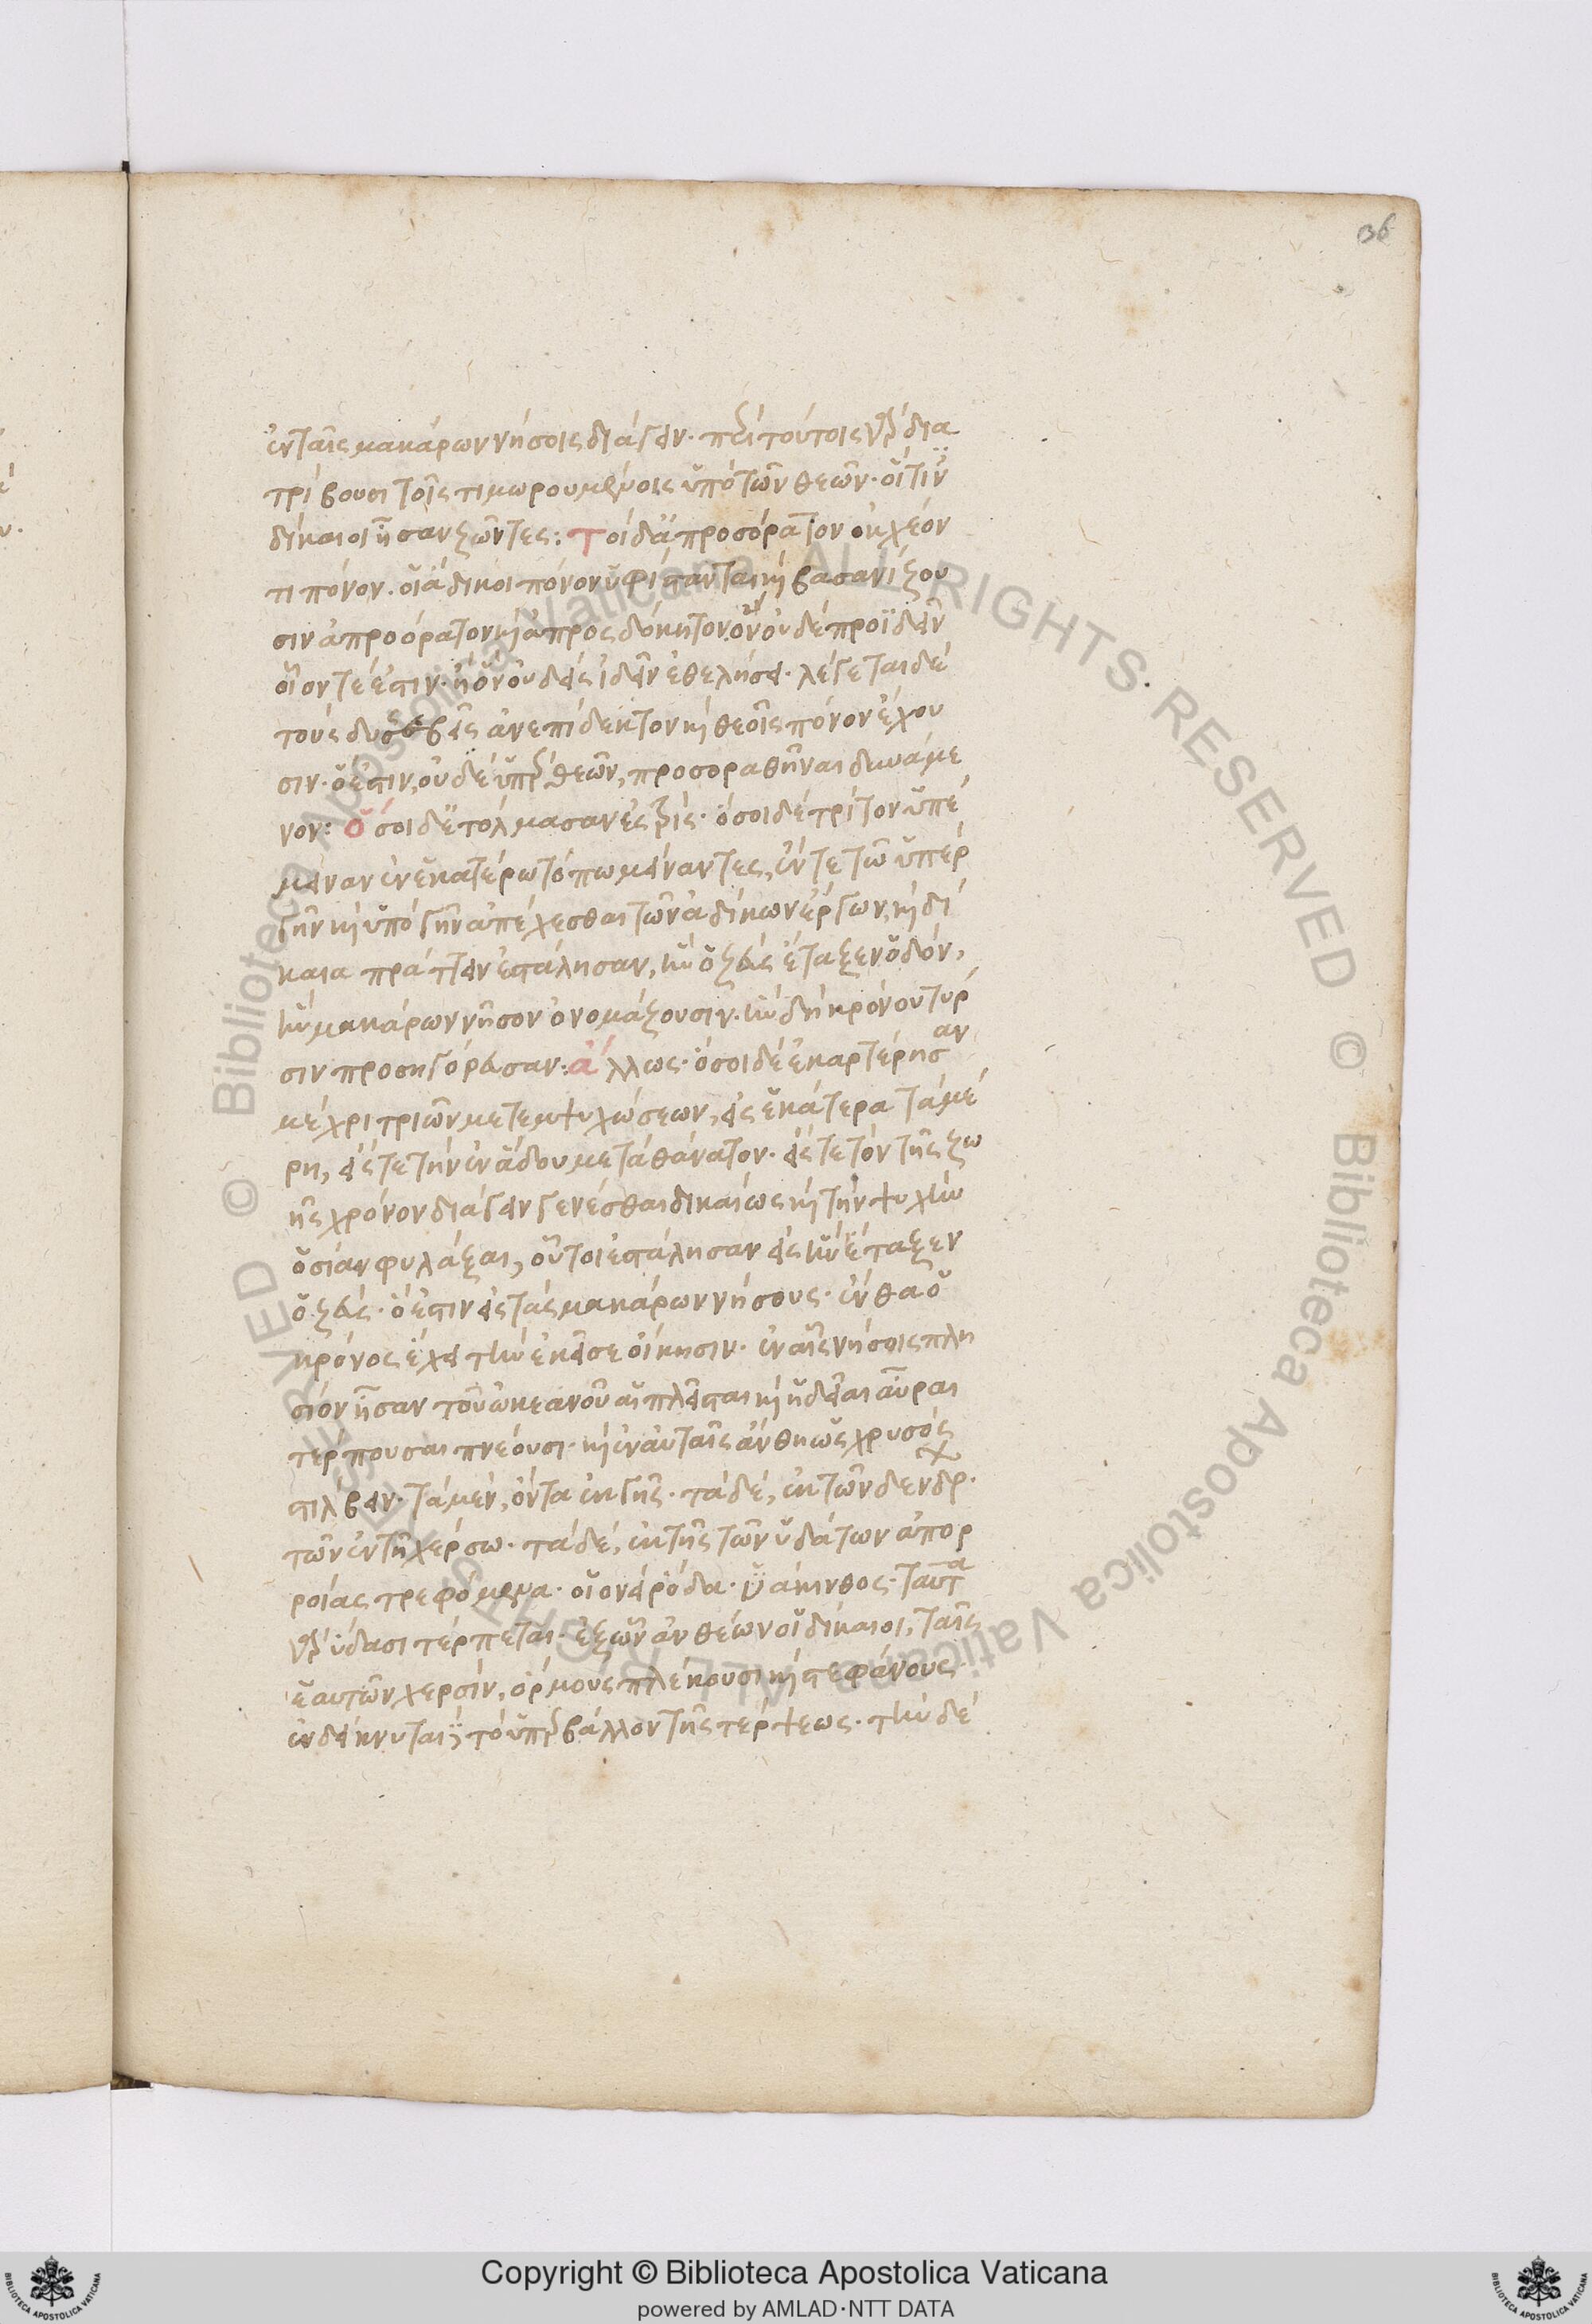 136
ἐν ταῖς μακάρων νήσοις διάγειν· περὶ τούτοις γὰρ δια
τρίβουσι τοῖς τιμωρουμένοις ὑπὸ τῶν θεῶν· οἵτιν
δίκαιοι ἦσαν ζῶντες: τοὶ δ' ἀπροσόρατον ὀκχέον
τι πόνον. οἱ ἄδικοι πόνον ὑφίστανται καὶ βασανίζου
σιν ἀπροόρατον καὶ ἀπροςδόκητον ὃν οὐδὲ προϊδεῖν
οἷόν τέ ἐστιν. ἢ ὃν οὐδεὶς ἰδεῖν ἐθελήσει. λέγεται δὲ
τοὺς δυσσεβεῖς ἀνεπίδεκτον καὶ θεοῖς πόνον ἔχου
σιν. ὅ ἐστιν, οὐδὲ ὑπὲρ θεῶν, προσοραθῆναι δυνάμε
νον: ὅσοι δ' ἐτόλμασαν ἐς τρίς. ὅσοι δὲ τρίτον ὑπέ
μειναν ἐν ἑκατέρω τόπω μείναντες, ἔν τε τῶ ὑπὲρ
γῆν καὶ ὑπὸ γῆν ἀπέχεσθαι τῶν ἀδίκων ἔργων, καὶ δί
καια πράττειν ἐστάλησαν, ἣν ὁ ζεὺς ἔταξεν ὁδόν,
ἣν μακάρων νῆσον ὀνομάζουσιν. ἣν δὴ κρόνου τύρ
σιν προσηγόρευσαν: ἄλλως· ὅσοι δὲ ἐκαρτέρησαν
μέχρι τριῶν μετεμψυχώσεων, εἰς ἑκάτερα τὰ μέ
ρη, εἴς τε τὴν ἐν ἅδου μετὰ θάνατον. εἴς τε τὸν τῆς ζω
ῆς χρόνον διάγειν γενέσθαι δικαίως καὶ τὴν ψυχὴν
ὁσίαν φυλάξαι, οὗτοι ἐστάλησαν εἰς ἣν ἔταξεν
ὁ ζεύς. ὅ ἐστιν εἰς τὰς μακάρων νήσους. ἔνθα ὁ
κρόνος ἔχει τὴν ἐκεῖσε οἴκησιν. ἐν αἷς νήσοις πλη
σίον ἦσαν τοῦ ὠκεανοῦ αἱ πλεῖσται καὶ ἡδεῖαι αὖραι
τέρπουσαι πνέουσι· καὶ ἐν αὐταῖς ἄνθη ὡς χρυσὸς
στίλβειν. τὰ μὲν, ὄντα ἐκ γῆς. τὰ δὲ, ἐκ τῶν δένδρ.
τῶν ἐν τῆ χέρσω. τὰ δὲ, ἐκ τῆς τῶν ὑδάτων ἀπορ
ροίας τρεφόμενα. οἱονεὶ ῥόδα. ὑάκινθος. ταῦτα
γὰρ ὕδασι τέρπεται. ἐξ ὧν ἀνθέων οἱ δίκαιοι, ταῖς
ἑαυτῶν χερσὶν, ὅρμους πλέκουσι καὶ στεφάνους.
ἐνδείκνυται τὸ ὑπερβάλλον τῆς τέρψεως. τὴν δὲ
Copyright © Biblioteca Apostolica Vaticana
powered by AMLAD·NTT DATA